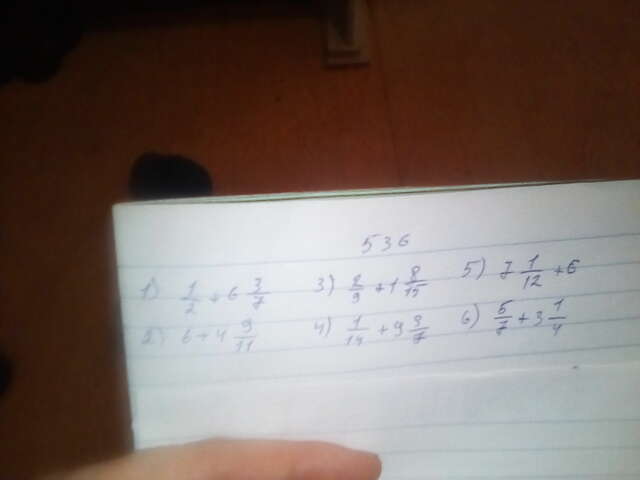 536
1) 1/2 + 6 3/7 3) 8/9 + 1 8/15 5) 7 1/12 + 6
2) 6 + 4 9/11 4) 1/14 + 9 3/7 6) 5/7 + 3 1/4